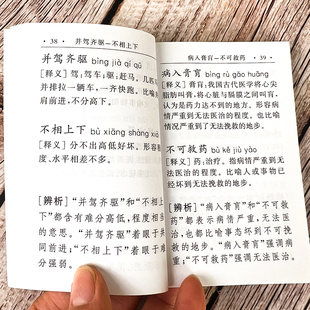 · 38 · 并驾齐驱—不相上下
并驾齐驱 bìng jià qí qū
[释义] 驾：驾车；驱：赶马。几匹
并排拉一辆车，一齐快跑。比喻
肩前进，不分高下。
不相上下 bù xiāng shàng xià
[释义] 分不出高低好坏。形容
度、水平相差不多。
[辨析] “并驾齐驱”和“不相上
下”都含有难分高低，程度相当
的意思。“并驾齐驱”着眼于共
同前进；“不相上下”着眼于难
分强弱。
病入膏肓—不可救药 · 39 ·
病入膏肓 bìng rù gāo huāng
[释义] 膏肓：我国古代医学将心尖
脂肪叫膏，将心脏与膈膜之间叫肓，
认为是药力达不到的地方。形容病
情严重到无法医治的地步。也比喻
情况严重到了无法挽救的地步。
不可救药 bù kě jiù yào
[释义] 药：治疗。指病情严重到无
法医治的地步。比喻人或事物已
经坏到无法挽救的地步。
[辨析] “病入膏肓”和“不可救
药”都表示病情严重，无法医
治，也都比喻事态坏到不可挽
救的地步。“病入膏肓”强调病
重；“不可救药”强调无法医
治。